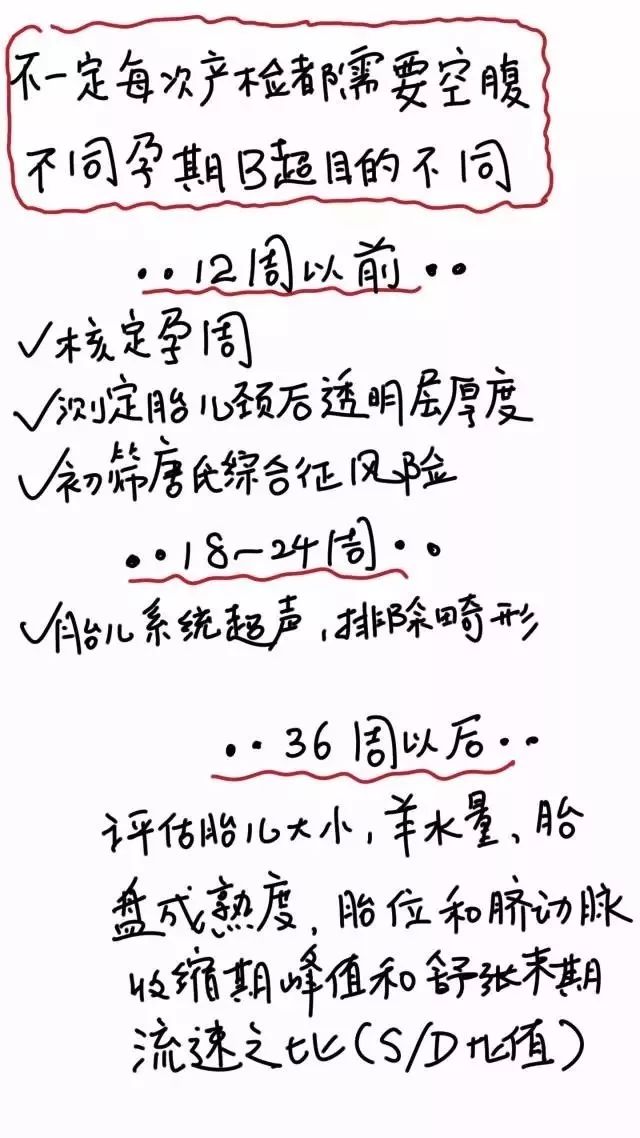 不一定每次产检都需要空腹
不同孕期B超目的不同
..12周以前..
✓核定孕周
✓测定胎儿颈后透明层厚度
✓初筛唐氏综合征风险
..18~24周..
✓胎儿系统超声,排除畸形
..36周以后..
评估胎儿大小,羊水量、胎
盘成熟度,胎位和脐动脉
收缩期峰值和舒张末期
流速之比(S/D比值)